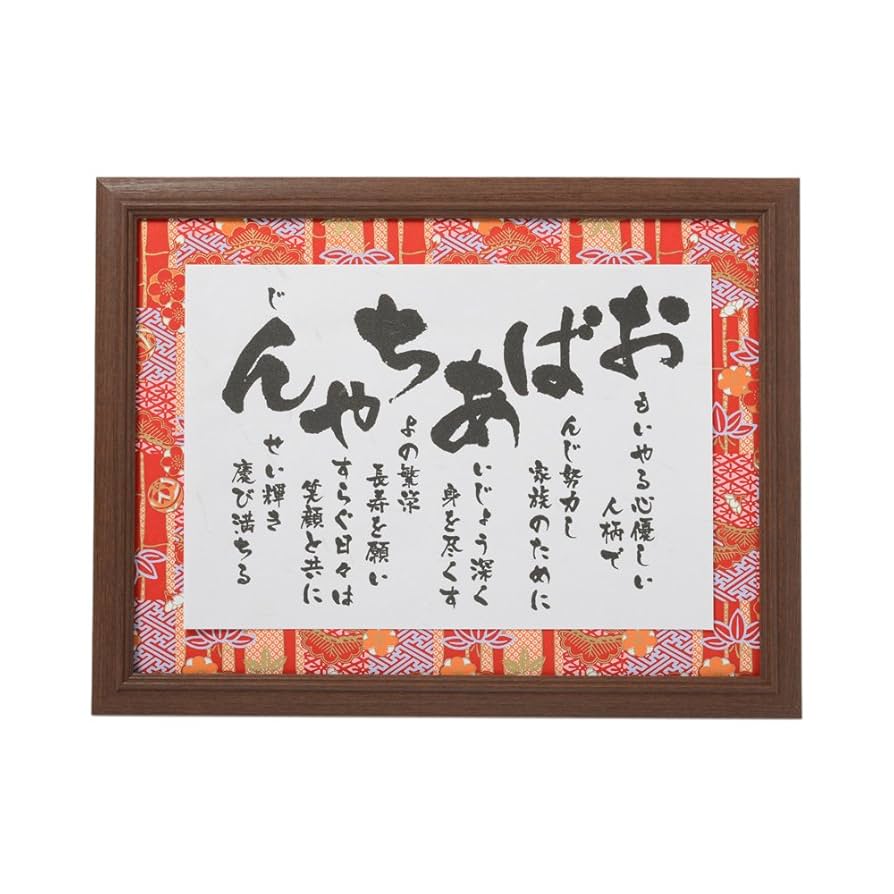 おばあちゃん
じ
もいやる心優しい
人柄で
んじ努力し
家族のために
いじょう深く
身を尽くす
よの繁栄
長寿を願い
すらぐ日々は
笑顔と共に
せい輝き
慶び満ちる